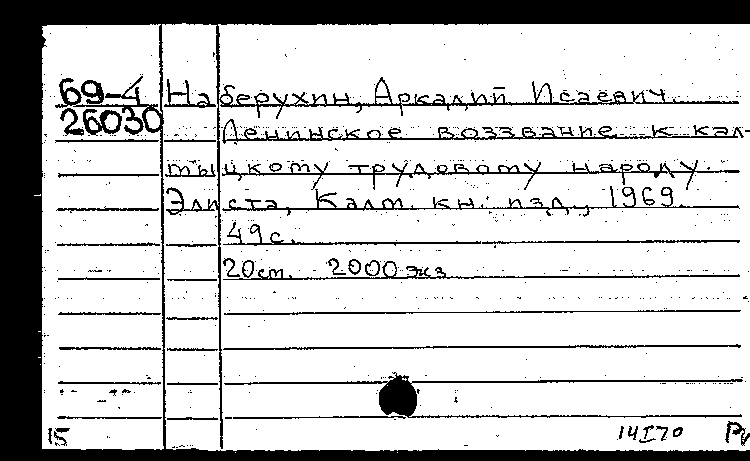 69-4 Наберухин, Аркадий Исаевич.
26030 Ленинское воззвание к кал-
мыцкому трудовому народу.
Элиста, Калм. кн. изд., 1969.
49с.
20см. 2000 экз
15 14I70